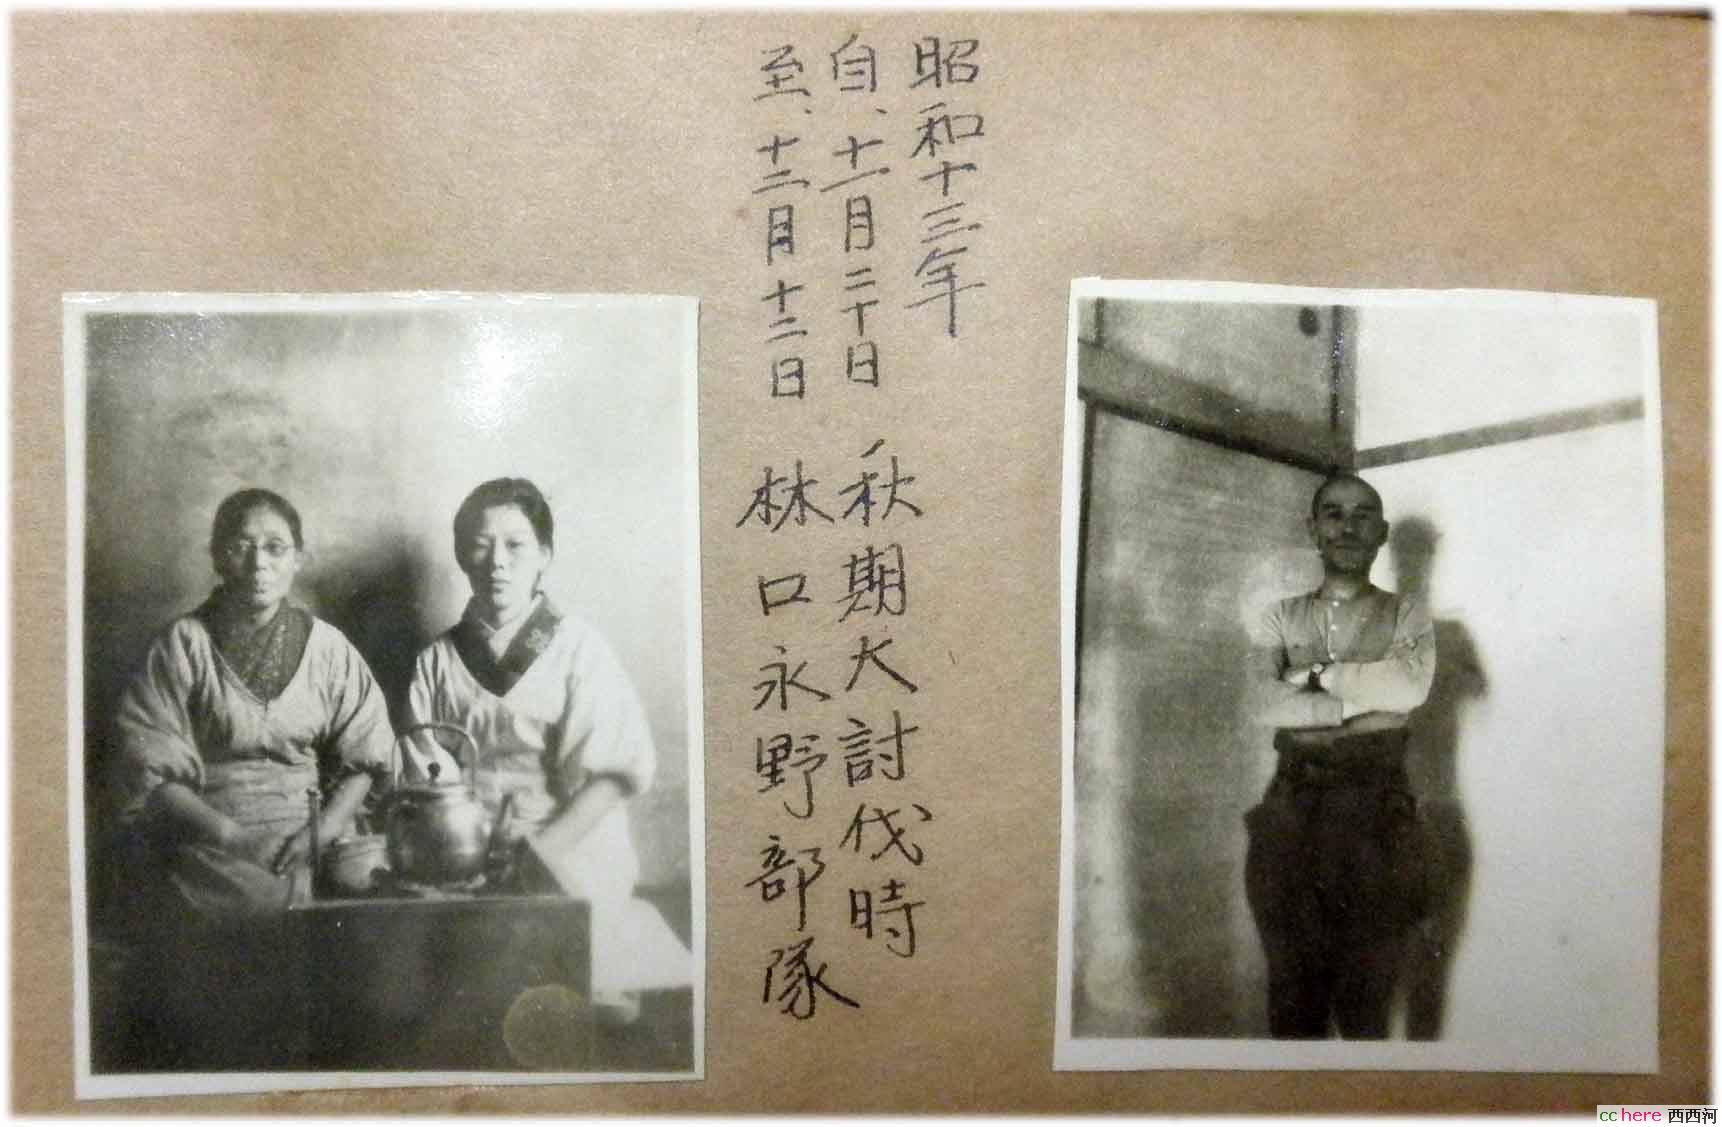 昭和十三年
自、十一月二十日 秋期大討伐時
至、十二月十二日 林口永野部隊
cchere 西西河